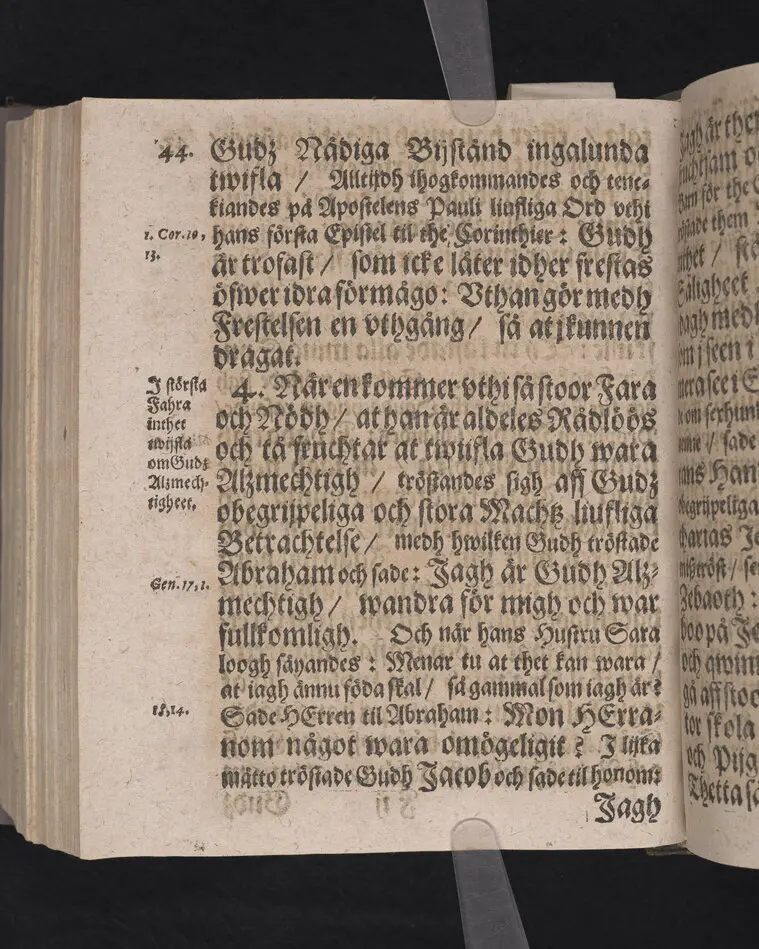 44. Gudz Nådiga Bijstånd ingalunda
twifla / Alltijdh ihogkommandes och tenc-
kiandes på Apostelens Pauli liufliga Ord vthi
1. Cor. 10, hans första Epistel til the Corinthier: Gudh
13. är trofast / som icke låter idher frestas
öfwer idra förmågo: Vthan gör medh
Frestelsen en vthgång / så at j kunnen
dragat.
I största 4. När en kommer vthi så stoor Fara
Fahra och Nödh / at han är aldeles Rådlöös
inthet
twijfla och tå fruchtar at twiifla Gudh wara
om Gudz
Alzmech- Alzmechtigh / tröstandes sigh aff Gudz
tigheet. obegrijpeliga och stora Machtz liufliga
Betrachtelse / medh hwilken Gudh tröstade
Gen. 17, 1. Abraham och sade: Jagh är Gudh Alz-
mechtigh / wandra för migh och war
fullkomligh. Och når hans Hustru Sara
loogh säyandes: Menar tu at thet kan wara /
at iagh ännu föda skal / så gammal som iagh är?
18, 14. Sade HErren til Abraham: Mon HErra-
nom något wara omögeligit? I lijka
måtto tröstade Gudh Jacob och sade til honom:
Jagh
är the
för the
them
Säligheet
medh
j seen i
see i
/ sade
Han
begrijpeliga
Zebaoth:
boo på
och
gå aff stoo
skola
och
Thetta